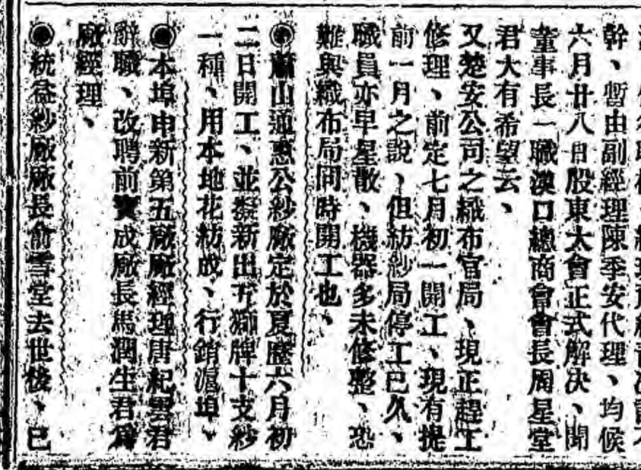 幹、暫由副經理陳季安代理、均候
六月廿八日股東大會正式解決、聞
董事長一職漢口總商會會長周星堂
君大有希望云、
又楚安公司之織布官局、現正趕工
修理、前定七月初一開工、現有提
前一月之說、但紡紗局停工已久、
職員亦早星散、機器多未修整、恐
難與織布局同時開工也、
◉蕭山通惠公紗廠定於夏歷六月初
二日開工、並擬新出五獅牌十支紗
一種、用本地花紡成、行銷滬埠、
◉本埠申新第五廠廠經理唐紀雲君
辭職、改聘前寶成廠長馬潤生君爲
廠經理、
◉統益紗廠廠長俞雪堂去世後、已